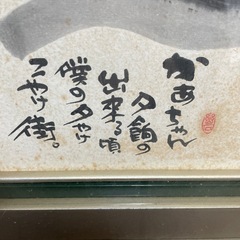 かあちゃん
夕餉の
出来る頃
僕の夕やけ
こやけ街。